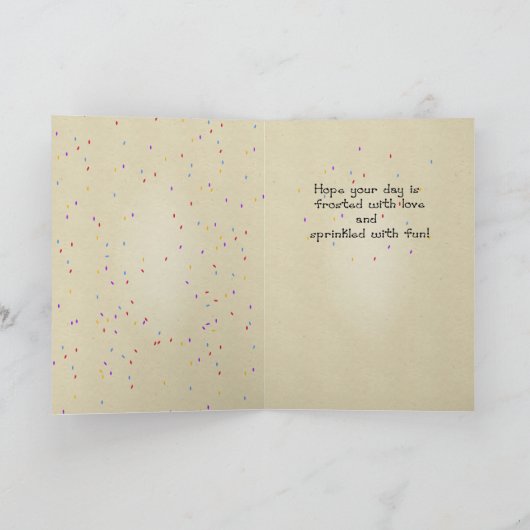 Hope your day is
frosted with love
and
sprinkled with fun!